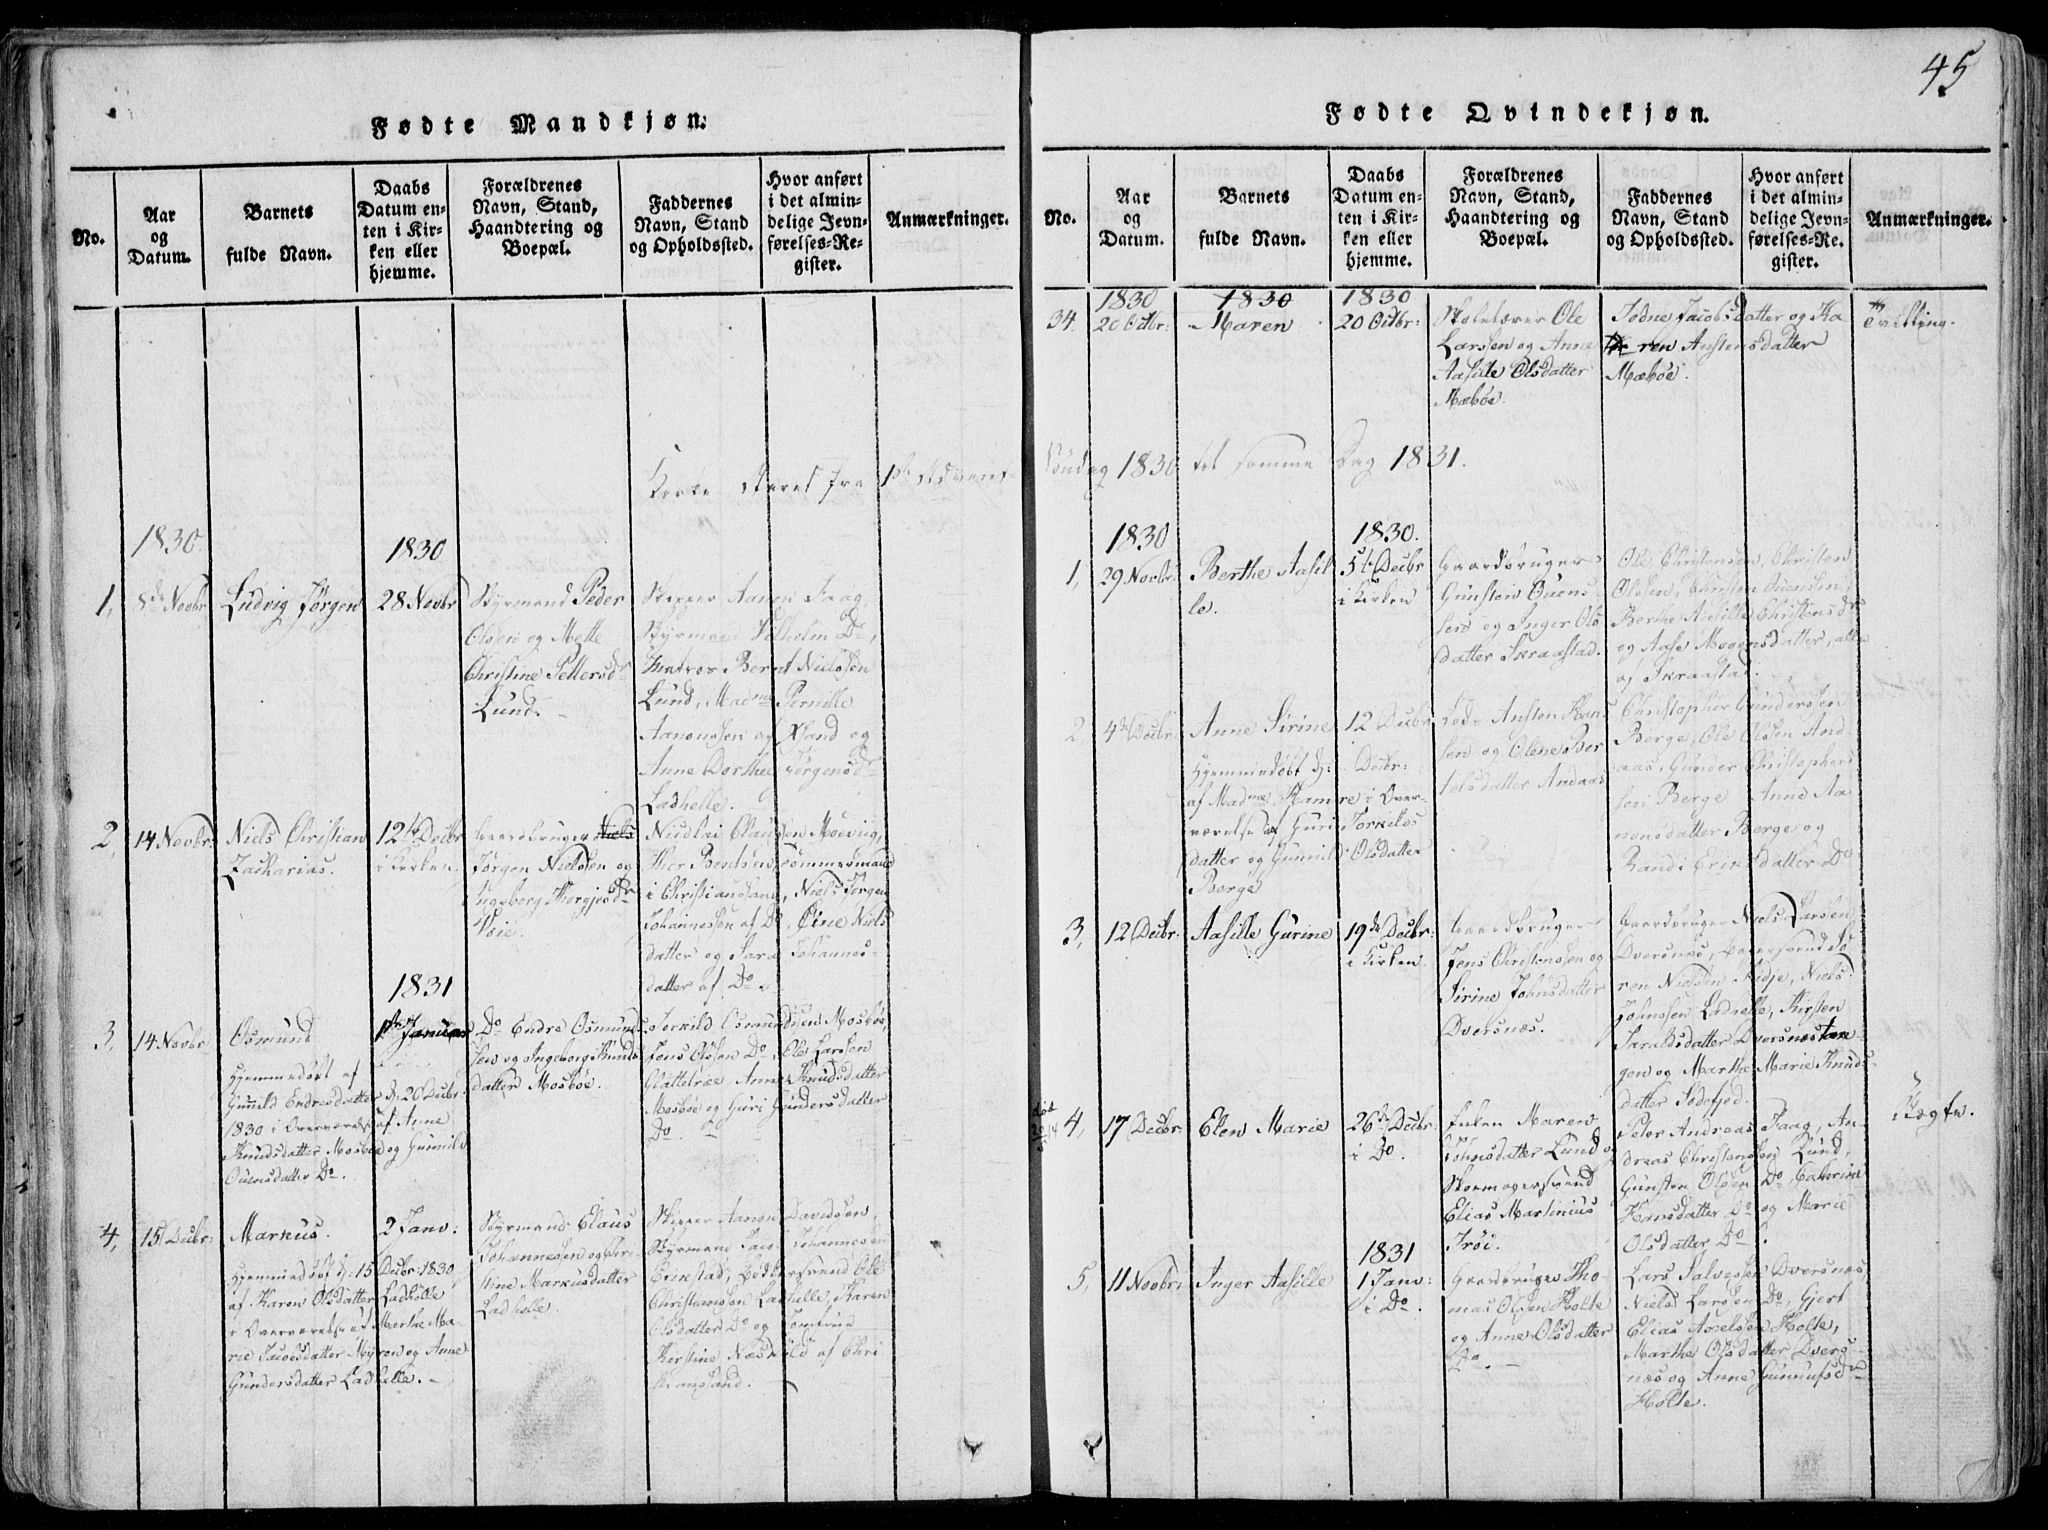 45
Fødte Mandkjøn.
No.
Aar og Datum.
Barnets fulde Navn.
Daabs Datum enten i Kirken eller hjemme.
Forældrenes Navn, Stand, Haandtering og Boepæl.
Faddernes Navn, Stand og Opholdssted.
Hvor anført i det almindelige Jevnførelses-Register.
Anmærkninger.
Kirke Aaret fra 1ste Advent-
1830
1830
1, 8de Novbr
Ludvig Jørgen
28 Novbr
Styrmand Peder
Olsen og Mette
Christine Pettersdr
Lund. -
Skipper Aanon Faag,
Styrmand Vilhelm Do,
Matros Bernt Nielsen
Lund, Madme Pernille
Aanonsen af Xsand og
Anne Dorthee Jørgensdr
Ladhelle.
2, 14 Novbr:
Niels Christian
Zacharias.
12te Decbr
i Kirken.
Gaardbruger Niels
Jørgen Nielsen og
Ingeborg Thorgjesdr
Voie.
Nicolai Clausen Moeviig,
Thor Bentsen, Tømmermand
i Christiansand, Niels Jørgen
Johannessen af Do, Oline Niels
datter og Sara Johannes-
datter af Do. -
1831
3, 14 Novbr:
Osmund
Hjemmedøbt af
Gunild Endresdatter d: 20 Decbr:
1830 i Overværelse af Anne
Knudsdatter Mosbøe og Gunild
Ouensdatter Do.
1ste Januar
Do Endre Osmund
sen og Ingeborg Knuds
datter Mosbøe.
Torkild Osmundsen Mosbøe,
Jens Olsen Do, Ole Larsen
Glattetræe, Anne Knudsdatter
Mosbøe og Guri Gundersdatter
Do. -
4, 15 Decbr:
Markus.
Hjemmedøbt d: 15 Decbr: 1830
af Karen Olsdatter Ladhelle
i Overværelse af Marthe Ma-
rie Jacobsdatter Myren og Anne
Gundersdatter Ladhelle. -
2 Janv:
Styrmand Claus
Johannessen og Chri-
stine Markusdatter
Ladhelle.
Skipper Aanon Davidsen,
Styrmand Jac. Johannesen
Erikstad, Bødkersvend Ole
Christiansen Ladhelle, Karen
Olsdatter Do og Jomfrue
Kirstine Næsmild af Chri
stiansand.
Fødte Qvindekjøn.
No.
Aar og Datum.
Barnets fulde Navn.
Daabs Datum enten i Kirken eller hjemme.
Forældrenes Navn, Stand, Haandtering og Boepæl.
Faddernes Navn, Stand og Opholdssted.
Hvor anført i det almindelige Jevnførelses-Register.
Anmærkninger.
1830
1830
1830
34. 20 Octbr:
Maren
20 Octbr:
Skolelærer Ole
Larssen og Anne
Aasille Olsdatter
Mæbøe.
Todne Jacobsdatter og Ka
ren Anstensdatter
Mæbøe.
Tvilling.
Søndag 1830 til samme Dag 1831.
1830
1830.
1, 29 Novbr:
Berthe Aasil
le.
5te Decbr
i Kirken
Gaardbruger
Gunsten Ouens
sen og Inger Ols
datter Skraastad.
Ole Christensen, Christen
Olsen, Christen Ouensen,
Berthe Aasille Christensdr
og Aase Mogensdatter, alle
af Skraastad.
2, 4de Decbr:
Anne Sirine
Hjemmedøbt d: Decbr:
af Madme Hamre i Over-
værelse af Guri Torkilds
datter og Gunild Olsdatter
Berge
12 Decbr
Lods Ansten Han
sen og Olene Ber
telsdatter Andaas
Christopher Gundersen
Berge, Ole Olsen And-
aas, Gunder Christophers
sen Berge Anne Aa
nonsdatter Berge og
Randi Eriksdatter Do
3, 12 Decbr:
Aasille Gurine
19de Decbr:
i Kirken
Gaardbruger
Jens Christensen og
Sirine Johnsdatter
Dversnæs.
Gaardbruger Niels Larsen
Dversnæs, Bødkersvend Sø
ren Nielsen Kidje, Niels
Johnssen Ladhelle, Kirsten
Taraldsdatter Dversnæstan-
gen og Marthe Marie Knuds-
datter Sodefjed.
død
4, 17 Decbr:
Elen Marie
26de Decbr:
i Do.
Enken Maren
Johnsdatter Lund og
Skomagersvend
Elias Martinius
Trøi.
Peter Andreas Faag, An-
dreas Christensen Lund,
Gunsten Olsen Do, Cathrine
Hansdatter Do og Marie
Olsdatter Do.
Uægte.
1831
5, 11 Novbr:
Inger Aasille
1 Janv:
i Do.
Gaardbruger Tho-
mas Olsen Holte
og Anne Olsdatter
Do. -
Lars Salvesen Dversnæs,
Niels Larsen Do, Gjert
Elias Axelsen Holte,
Marthe Olsdatter Dvers-
næs og Anne Gunnufsdr
Holte.